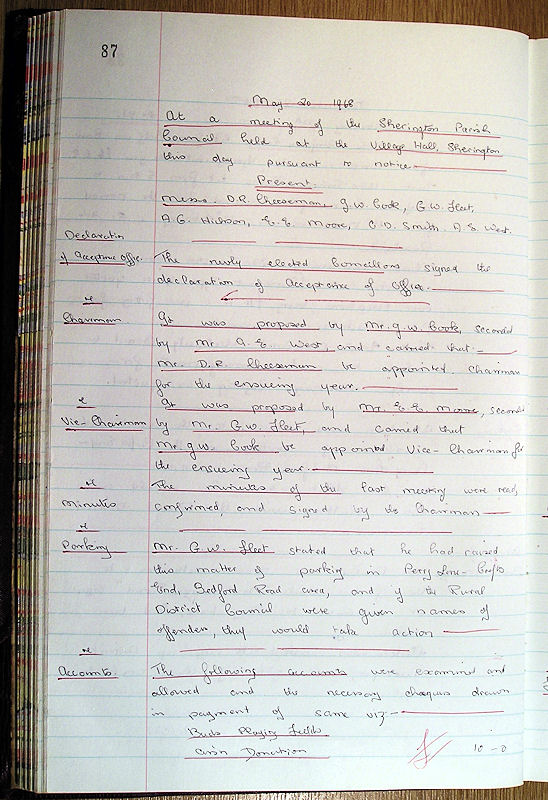 87
May 20 1968
At a meeting of the Sherington Parish
Council held at the Village Hall, Sherington
this day pursuant to notice
Present
Messrs. D.R. Cheeseman, G.W. Cook, G.W. Fleet,
A.G. Hickson, E.E. Moore, C.D. Smith. A.E. West.
Declaration
of Acceptance Office.
The newly elected Councillors signed the
declaration of Acceptance of Office.
re
Chairman
It was proposed by Mr. G.W. Cook, second
by Mr A.E. West, and carried that
Mr. D.R. Cheeseman be appointed Chairman
for the ensueing year.
re
Vice-Chairman
It was proposed by Mr. E.E. Moore, second
by Mr. G.W. Fleet, and carried that
Mr G.W. Cook be appointed Vice-Chairman for
the ensueing year.
re
Minutes
The minutes of the last meeting were read,
confirmed, and signed by the Chairman
re
Parking
Mr. G.W. Fleet stated that he had raised
this matter of parking in Perry Lane - Crofts
End, Bedford Road area, and if the Rural
District Council were given names of
offenders, they would take action
re
Accounts.
The following accounts were examined and
allowed and the necessary cheques drawn
in payment of same viz -
Bucks Playing Fields
Assn Donation
10-0